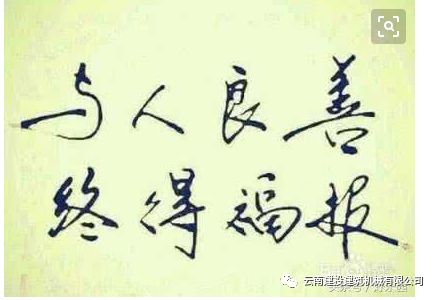 与人良善
终得福报
云南建投建筑机械有限公司